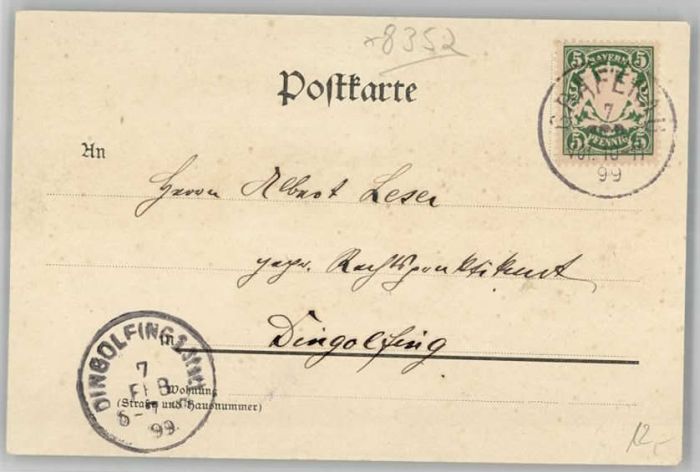 8352
Postkarte
5 BAYERN 5
GRAFENAU
7
VOR. 10-11
99
5 PFENNIG 5
An
Herrn Albert Leser
gepr. Rechtspraktikant
in Dingolfing
DINGOLFING
7
FEB
99
Wohnung
(Straße und Hausnummer)
12,-